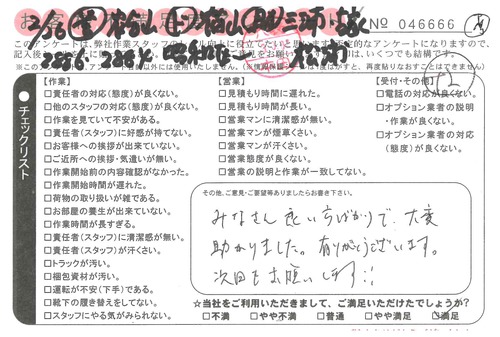 No 046666
【作業】
□責任者の対応(態度)が良くない。
□他のスタッフの対応(態度)が良くない。
□作業を見ていて不安がある。
□責任者(スタッフ)に好感が持てない。
□お客様への挨拶が出来ていない。
□ご近所への挨拶・気遣いが無い。
□作業開始前の内容確認がなかった。
□作業開始時間が遅れた。
□荷物の取り扱いが雑である。
□お部屋の養生が出来ていない。
□作業時間が長すぎる。
□責任者(スタッフ)に清潔感が無い。
□責任者(スタッフ)が汗くさい。
□トラックが汚い。
□梱包資材が汚い。
□運転が不安(下手)である。
□靴下の履き替えをしてない。
□スタッフにやる気がみられない。
【営業】
□見積もり時間に遅れた。
□見積もり時間が長い。
□営業マンに清潔感が無い。
□営業マンが煙草くさい。
□営業マンが汗くさい。
□営業態度が良くない。
□営業の説明と作業が一致してない。
【受付・その他】
□電話の対応が良くない。
□オプション業者の説明
・作業が良くない。
□オプション業者の対応
(態度)が良くない。
●チェックリスト
その他、ご意見・ご要望等ありましたらお書き下さい。
みなさん良い方ばかりで、大変
助かりました。有りがとうございます。
次回もお願いします!!
☆当社をご利用いただきまして、ご満足いただけたでしょうか?
□不満 □やや不満 □普通 □やや満足 □満足